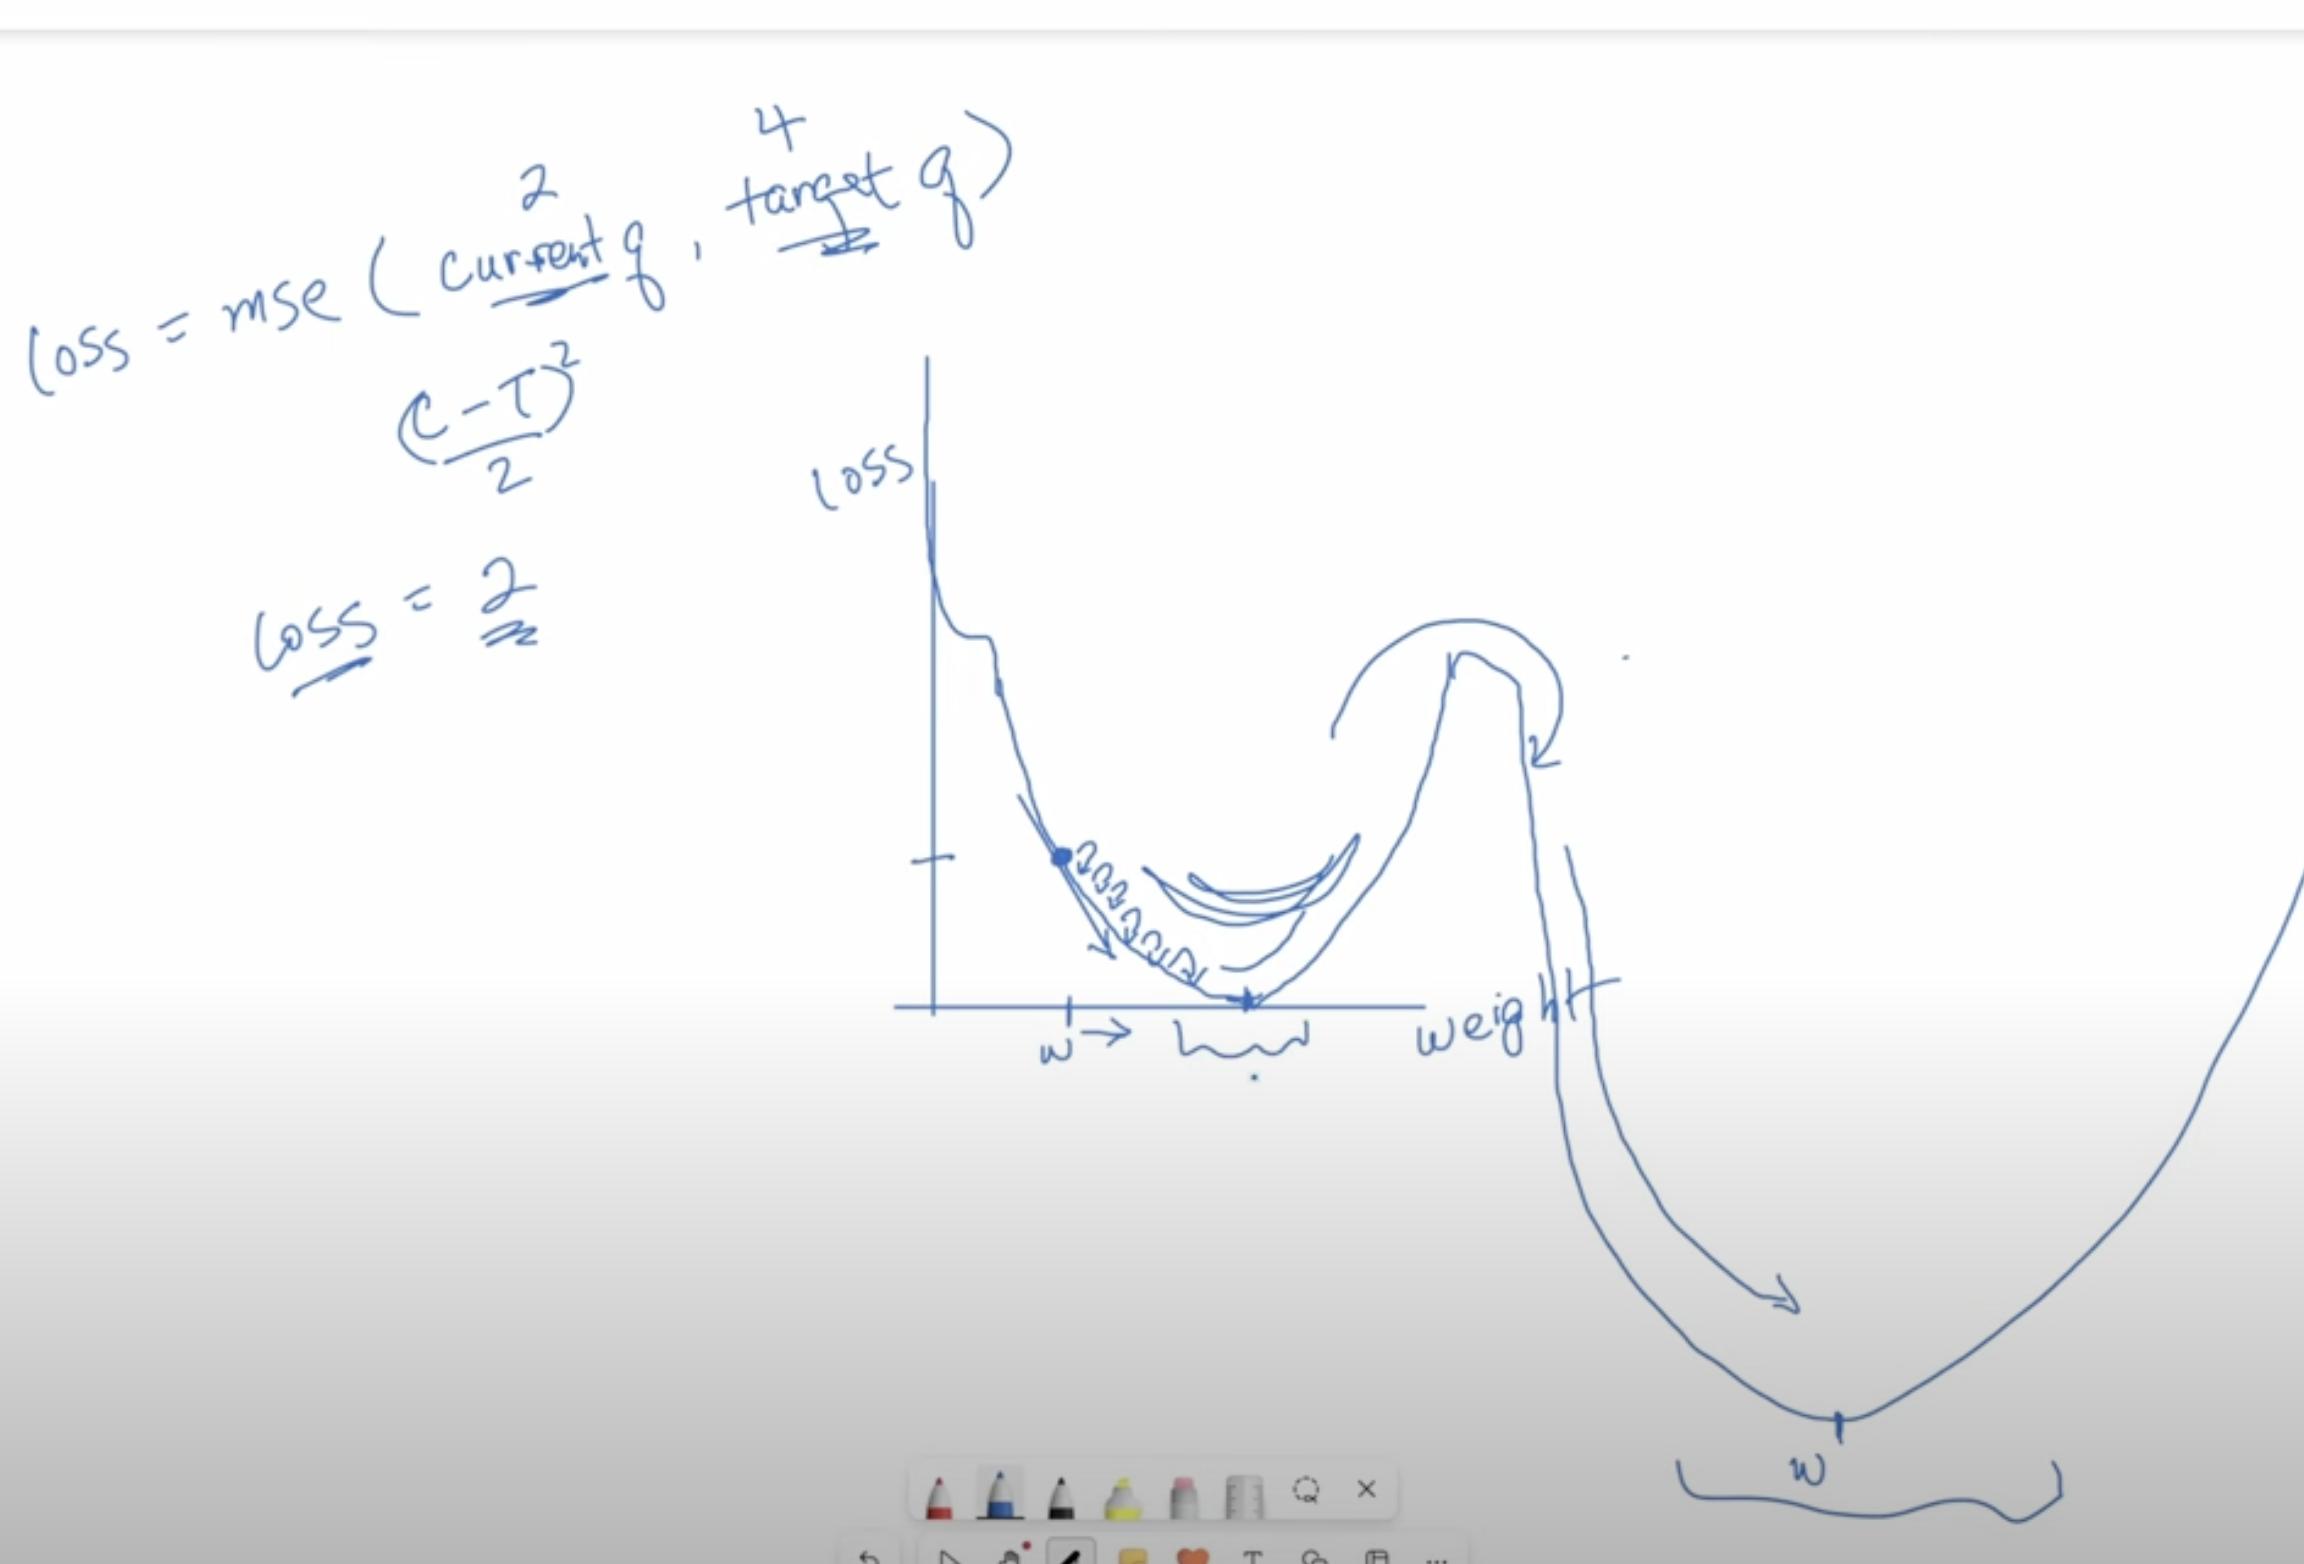 2 4
loss = mse (current q, target q)
(C-T)²
2
loss = 2
loss
w → weight
w